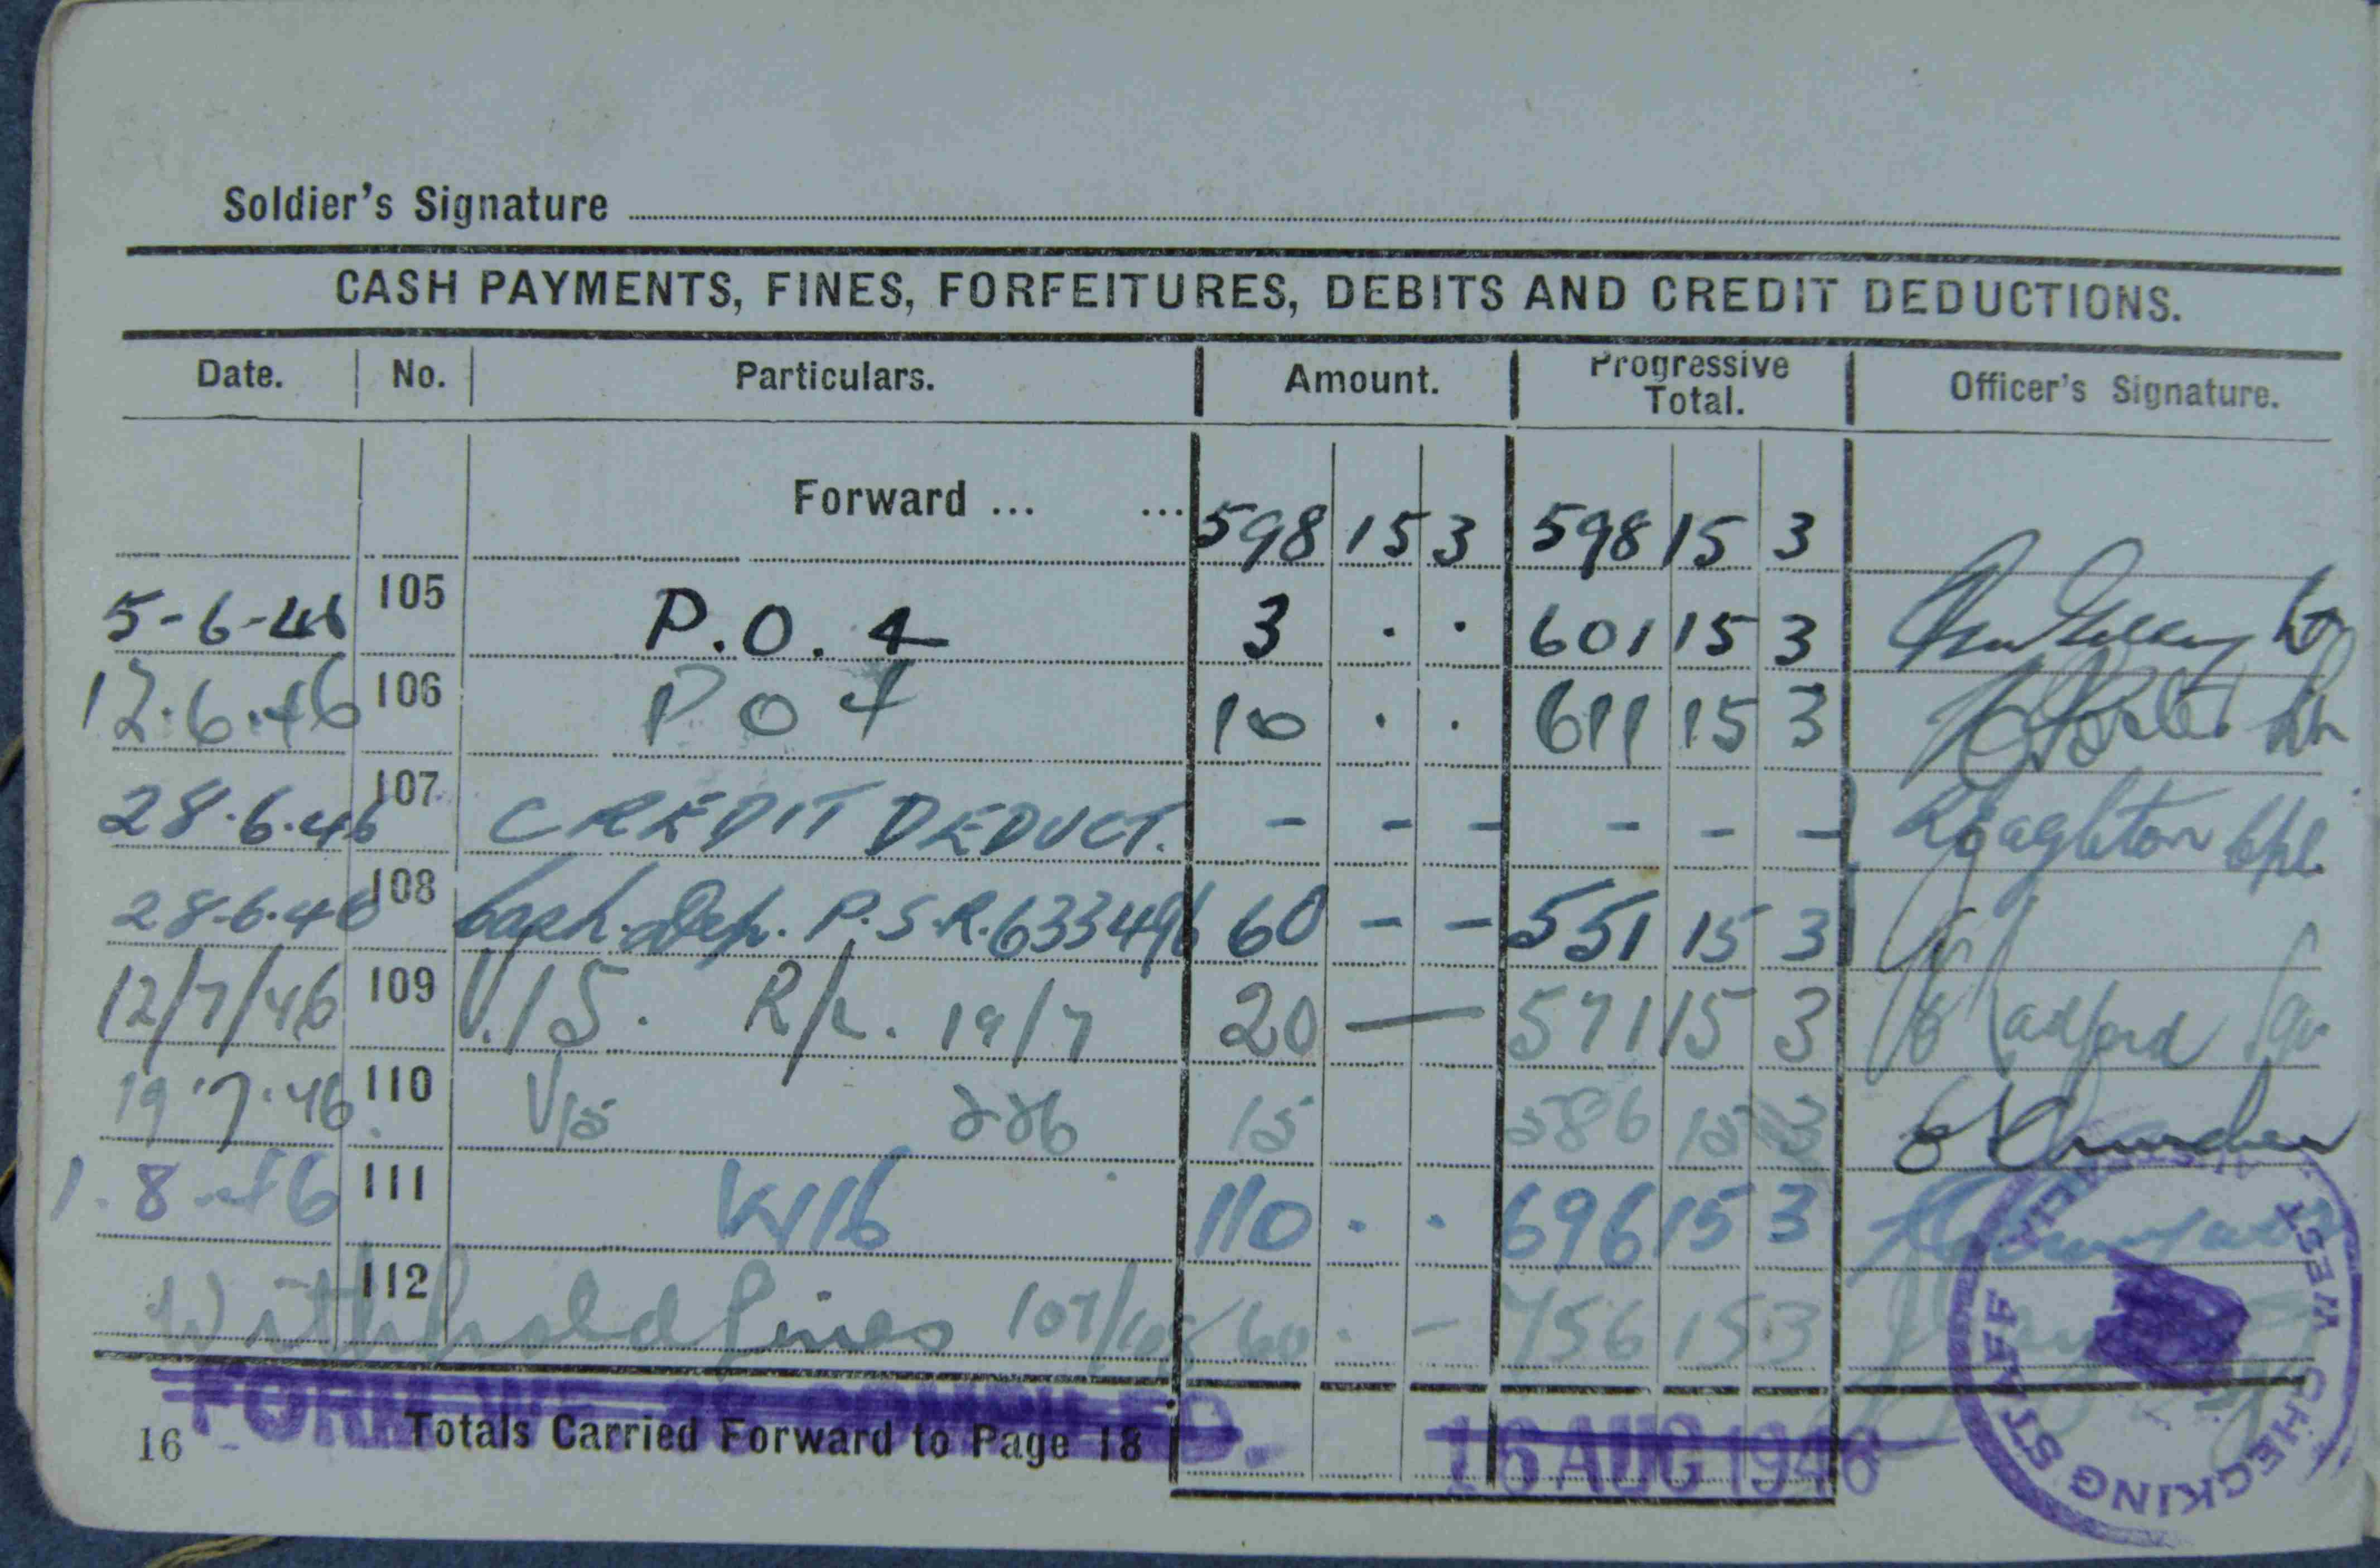 Soldier's Signature
CASH PAYMENTS, FINES, FORFEITURES, DEBITS AND CREDIT DEDUCTIONS.
Date. No. Particulars. Amount. Progressive Total. Officer's Signature.
Forward ... ... 598 15 3 598 15 3
5-6-46 105 P.O. 4 3 . . 601 15 3
12.6.46 106 P O 4 10 . . 611 15 3
28.6.46 107 CREDIT DEDUCT. - - - - - -
28.6.46 108 Cash. Dep. P.S.R. 633496 60 - - 551 15 3
12/7/46 109 V.15. R/L. 19/7 20 — 571 15 3
19.7.46 110 V15 226 15 586 15 3
1.8.46 111 110 . . 696 15 3
112 Withhold lines 107/108 60 . - 756 15 3
16 Totals Carried Forward to Page 18
16 AUG 1946
CHECKING STAFF